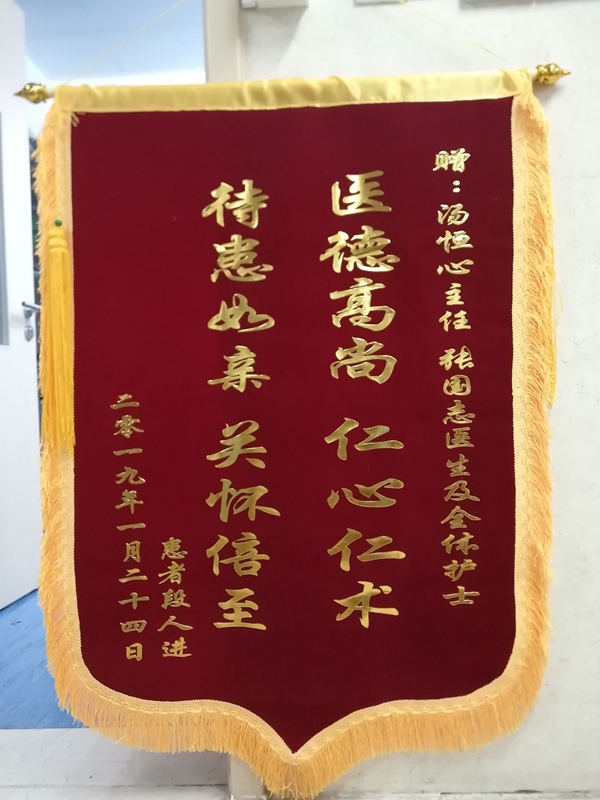 赠：汤恒心主任 张国志医生及全体护士
医德高尚 仁心仁术
待患如亲 关怀倍至
患者段人进
二零一九年一月二十四日